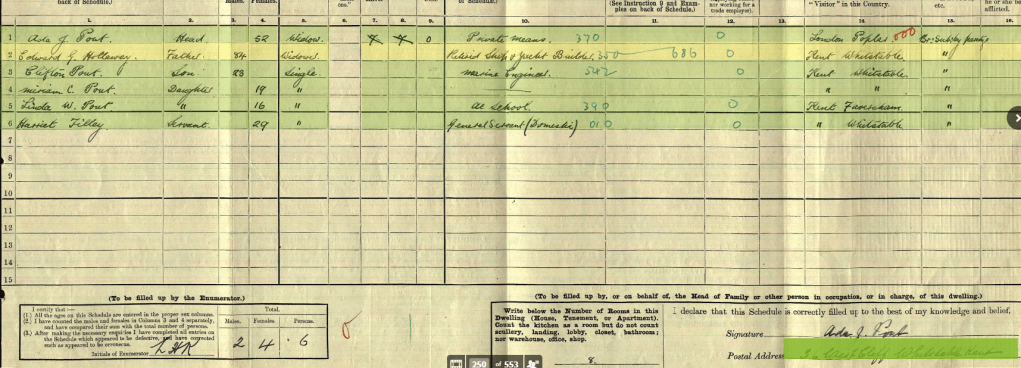 back of Schedule.) Males. Females. one." of Schedule.) (See Instruction 9 and Examples on back of Schedule.) nor working for a trade employer). "Visitor" in this Country. etc. he or she be afflicted.
1. 2. 3. 4. 5. 6. 7. 8. 9. 10. 11. 12. 13. 14. 15. 16
1 Ada J. Pout. Head. 52 Widow. 0 Private means. 370 0 London Poplar. 000
2 Edward G. Holloway. Father. 84 Widower. Retired Ship & Yacht Builder 350 686 0 Kent Whitstable "
3 Clifton Pout. Son 23 Single. Marine Engineer. 542 0 Kent Whitstable. "
4 Miriam C. Pout. Daughter 19 " " " "
5 Linda W. Pout " 16 " At School. 390 0 Kent Faversham. "
6 Harriet Tilley Servant. 29 " General Servant (Domestic) 010 0 " Whitstable "
7
8
9
10
11
12
13
14
15
(To be filled up by the Enumerator.)
I certify that:—
(1.) All the ages on this Schedule are entered in the proper sex columns.
(2.) I have counted the males and females in Columns 3 and 4 separately, and have compared their sum with the total number of persons.
(3.) After making the necessary enquiries I have completed all entries on the Schedule which appeared to be defective, and have corrected such as appeared to be erroneous.
Initials of Enumerator
Total.
Males. Females. Persons.
2 4 6
(To be filled up by, or on behalf of, the Head of Family or other person in occupation, or in charge, of this dwelling.)
Write below the Number of Rooms in this Dwelling (House, Tenement, or Apartment). Count the kitchen as a room but do not count scullery, landing, lobby, closet, bathroom; nor warehouse, office, shop.
8.
I declare that this Schedule is correctly filled up to the best of my knowledge and belief.
Signature Ada J. Pout
Postal Address West Cliff Whitstable Kent
250 of 553